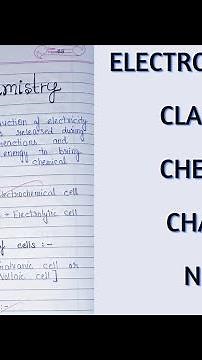 mistry
uction of electricity
released during
reactions and
energy to bring
chemical
Electrochemical cell
+ Electrolytic cell
of cells :-
Galvanic cell or
Voltaic cell]
ELECTRO
CLA
CHE
CHA
N